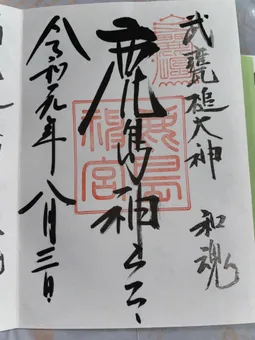 武甕槌大神
和魂
鹿島神宮
鹿島
神宮
令和元年八月三日